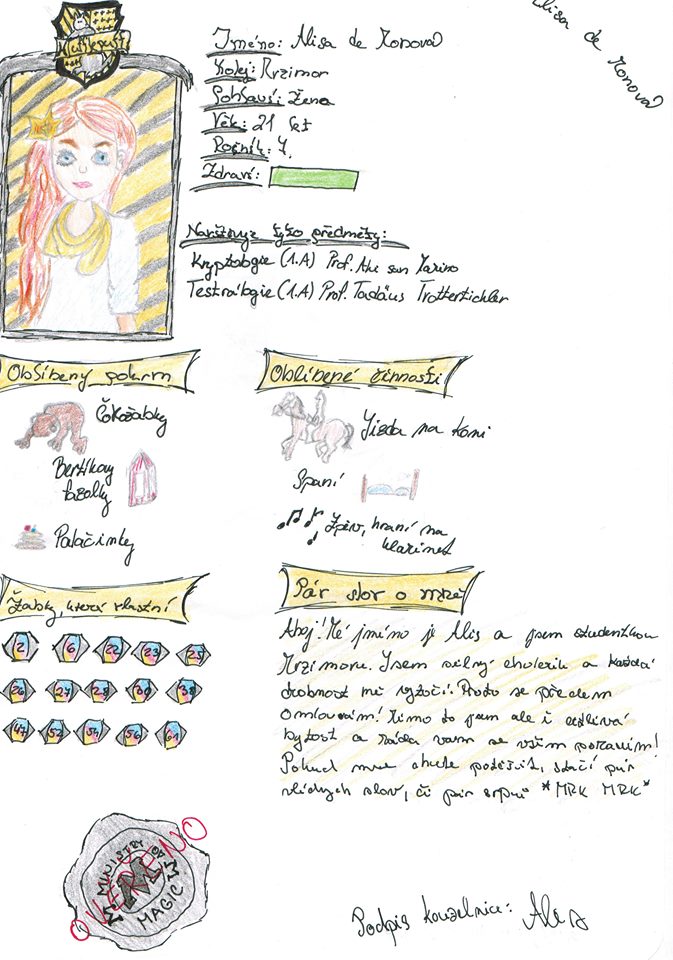 Alisa de Monova
Hufflepuff
Jméno: Alisa de Monova
Kolej: Mrzimor
Pohlaví: Žena
Věk: 21 let
Ročník: 7.
Zdraví:
Navštěvuje tyto předměty:
Kryptologie (1.A) Prof. San Marino
Testrálogie (1.A) Prof. Tadäus Trotterteichler
Oblíbený pokrm
Oblíbené činnosti
Čokožabky
Jízda na koni
Bertíkovy
fazolky
Spaní
Palačinky
Zpěv, hraní na
klarinet
Žabky, které vlastní
Pár slov o mně
2 6 22 23 25
26 27 28 30 38
47 52 54 56 61
Ahoj! Mé jméno je Alis a jsem studentkou
Mrzimoru. Jsem silný cholerik a každá
drobnost mě vytočí. Proto se předem
omlouvám! Mimo to jsem ale i citlivá
bytost a ráda vám se vším poradím!
Pokud mne chcete potěšit, stačí pár
vlídných slov, či pár srpců *MRK MRK*
MINISTRY OF MAGIC
M
OVĚŘENO
Podpis kouzelnice: Alis